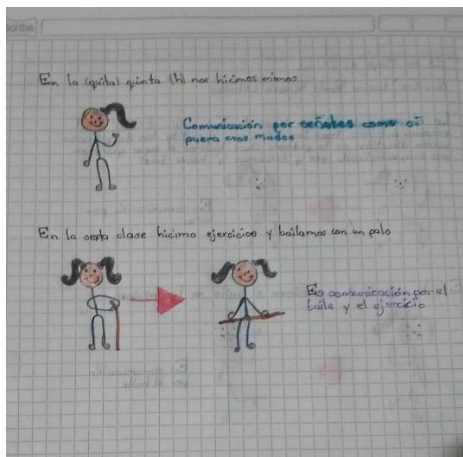 En la (quita) quinta (h) nos hicimos mimos
Comunicación por señales como si
puera mos mudos
En la sexta clase hicimo ejercicios y bailamos con un palo
Es comunicación por el
baile y el ejercicio